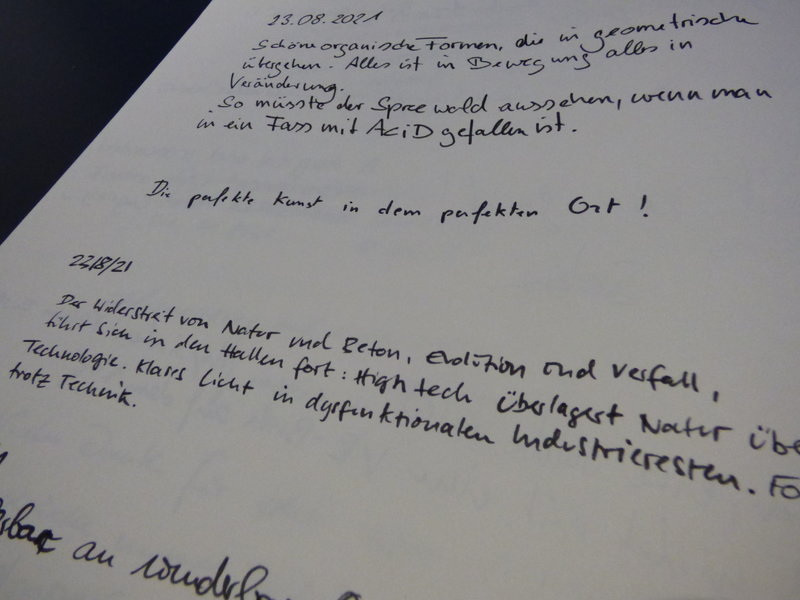 23.08.2021
Schöne organische Formen, die in geometrische
übergehen. Alles ist in Bewegung alles in
Veränderung.
So müsste der Spreewald aussehen, wenn man
in ein Fass mit ACiD gefallen ist.
Die perfekte Kunst in dem perfekten Ort!
22/8/21
Der Widerstreit von Natur und Beton, Evolution und Verfall,
führt sich in den Hallen fort: High tech überlagert Natur übe
Technologie. Klares Licht in dysfunktionalen Industrieresten. Fo
trotz Technik.
an